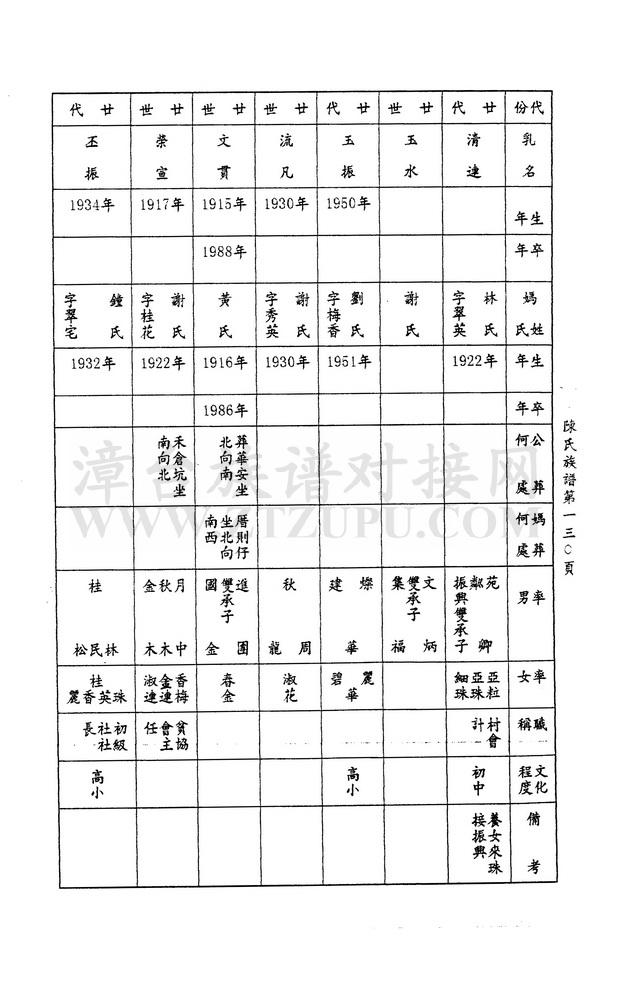 代份 廿代 廿世 廿代 廿世 廿世 廿世 廿代
乳名 清連 玉水 玉振 流凡 文貫 榮宣 丕振
生年 1950年 1930年 1915年 1917年 1934年
卒年 1988年
媽姓氏 林氏字翠英 謝氏 劉氏字梅香 謝氏字秀英 黃氏 謝氏字桂花 鐘氏字翠宅
生年 1922年 1951年 1930年 1916年 1922年 1932年
卒年 1986年
公葬何處 葬華安坐北向南 禾倉坑坐南向北
媽葬何處 厝則仔坐北向南西
率男 苑卿 鄰興雙承子 振 文炳 雙承子 集福 燦華 建 周 秋龍 進團 雙承子 國金 月中 秋木 金木 林 民 桂松
率女 亞粒 亞珠 細珠 麗華 碧 淑花 春金 香梅 金連 淑連 珠 英 香 桂麗
職稱 村會計 貧協會主任 初級社社長
文化程度 初中 高小 高小
備考 養女來珠接振興
陳氏族譜第一三〇頁
漳台族谱对接网
WWW.ZTZUPU.COM